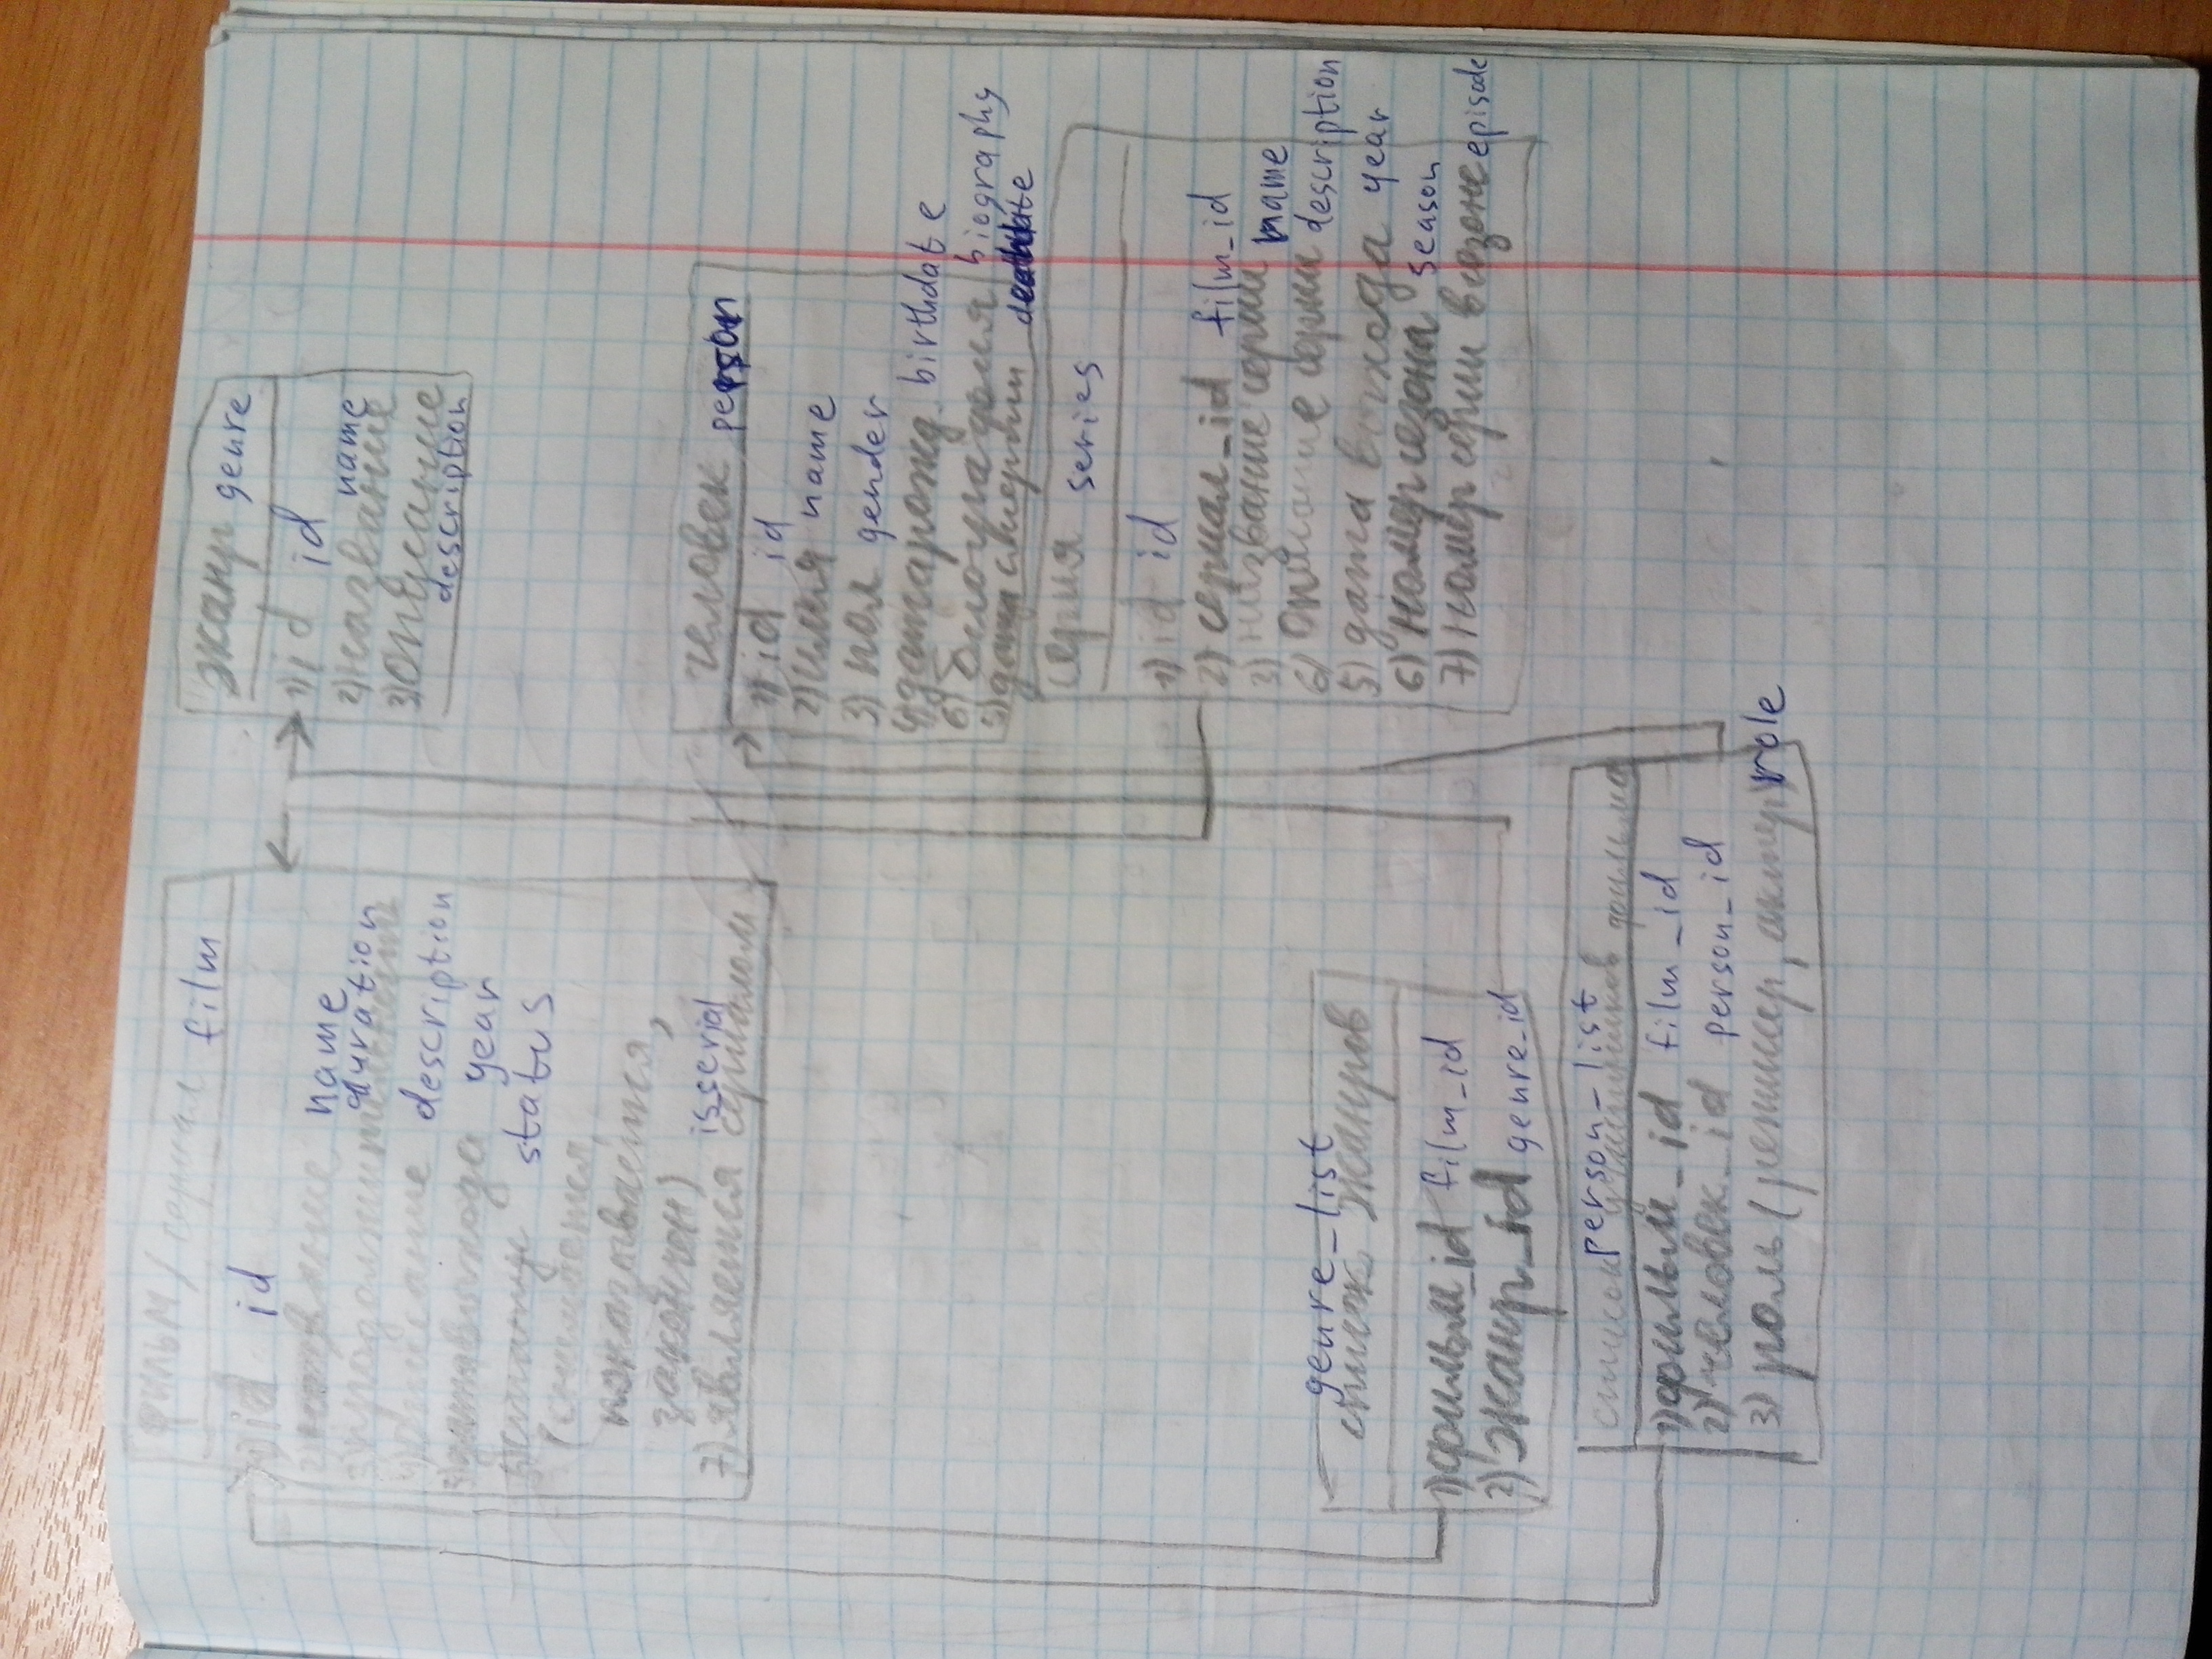 фильм/сериал film
1) id id
2) название name
3) продолжительность duration
4) описание description
5) дата выхода year
6) статус status
(снимается,
показывается,
закончен)
7) является сериалом isserial
жанр genre
1) id id
2) название name
3) Описание
description
человек person
1) id id
2) имя name
3) пол gender
4) дата рожд. birthdate
6) биография biography
5) дата смерти deathdate
серия series
1) id id
2) сериал_id film_id
3) название серии name
6) Описание серии description
5) дата выхода year
6) номер сезона season
7) номер серии в сезоне episode
genre_list
список жанров
1) фильм_id film_id
2) жанр_id genre_id
person-list
список участников фильма
1) фильм_id film_id
2) человек_id person_id
3) роль (режиссер, актер) role